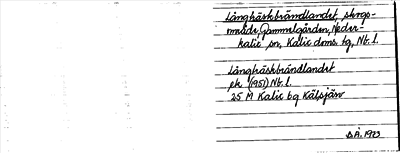 Långträskbrändlandet skogs-
område, Gammelgården, Neder-
kalix sn, Kalix doms. tg, Nb. l.
Långträskbrändlandet
ek (1951) Nb. l.
25 M Kalix bg Kälsjärv
B.Å. 1973